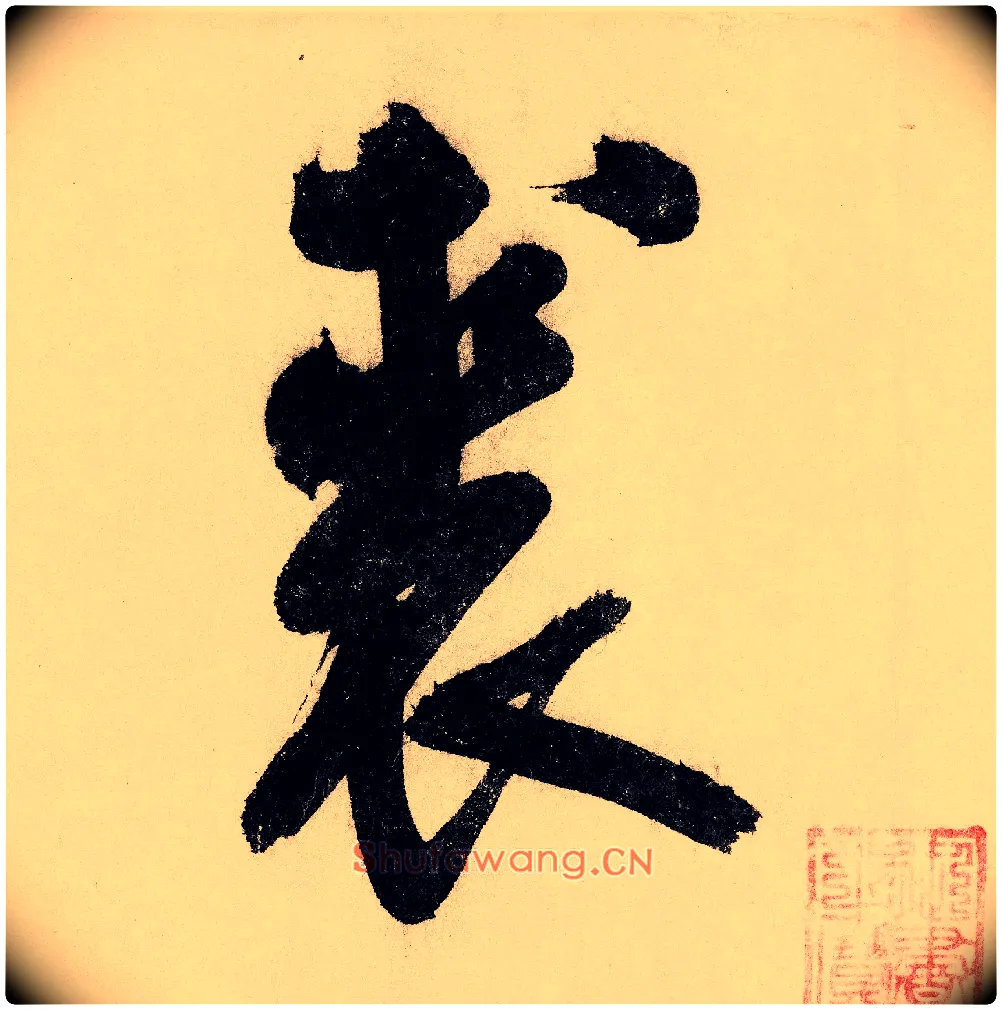 裘
Shufawang.CN